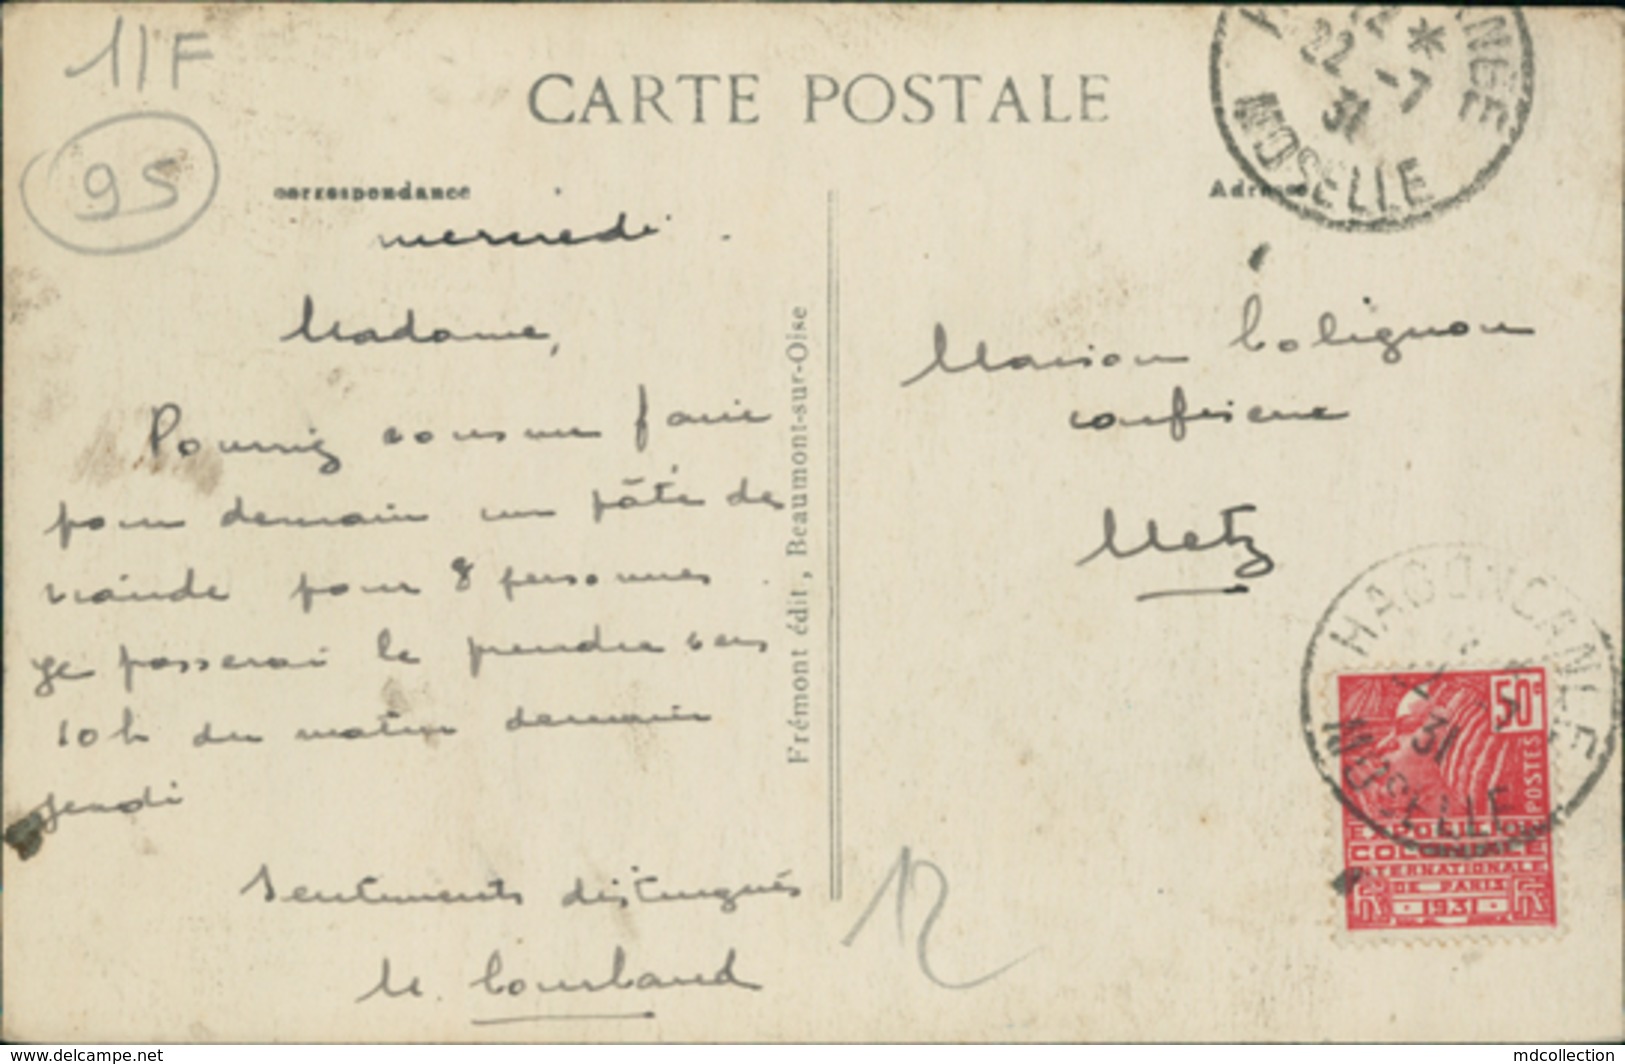 11F
95
CARTE POSTALE
correspondance
Adresse
22 -7
31
MOSELLE
mercredi
Madame,
Pourriez vous me faire
pour demain un pâté de
viande pour 8 personnes
je passerai le prendre vers
10 h du matin demain
jeudi
Sentiments distingués
M. Courbaud
Frémont édit, Beaumont-sur-Oise
Maison Colignon
confiserie
Metz
12
HAGONCANGE
31
MOSELLE
50c
POSTES
EXPOSITION
COLONIALE
INTERNATIONALE
DE PARIS
1931
www.delcampe.net
mdcollection